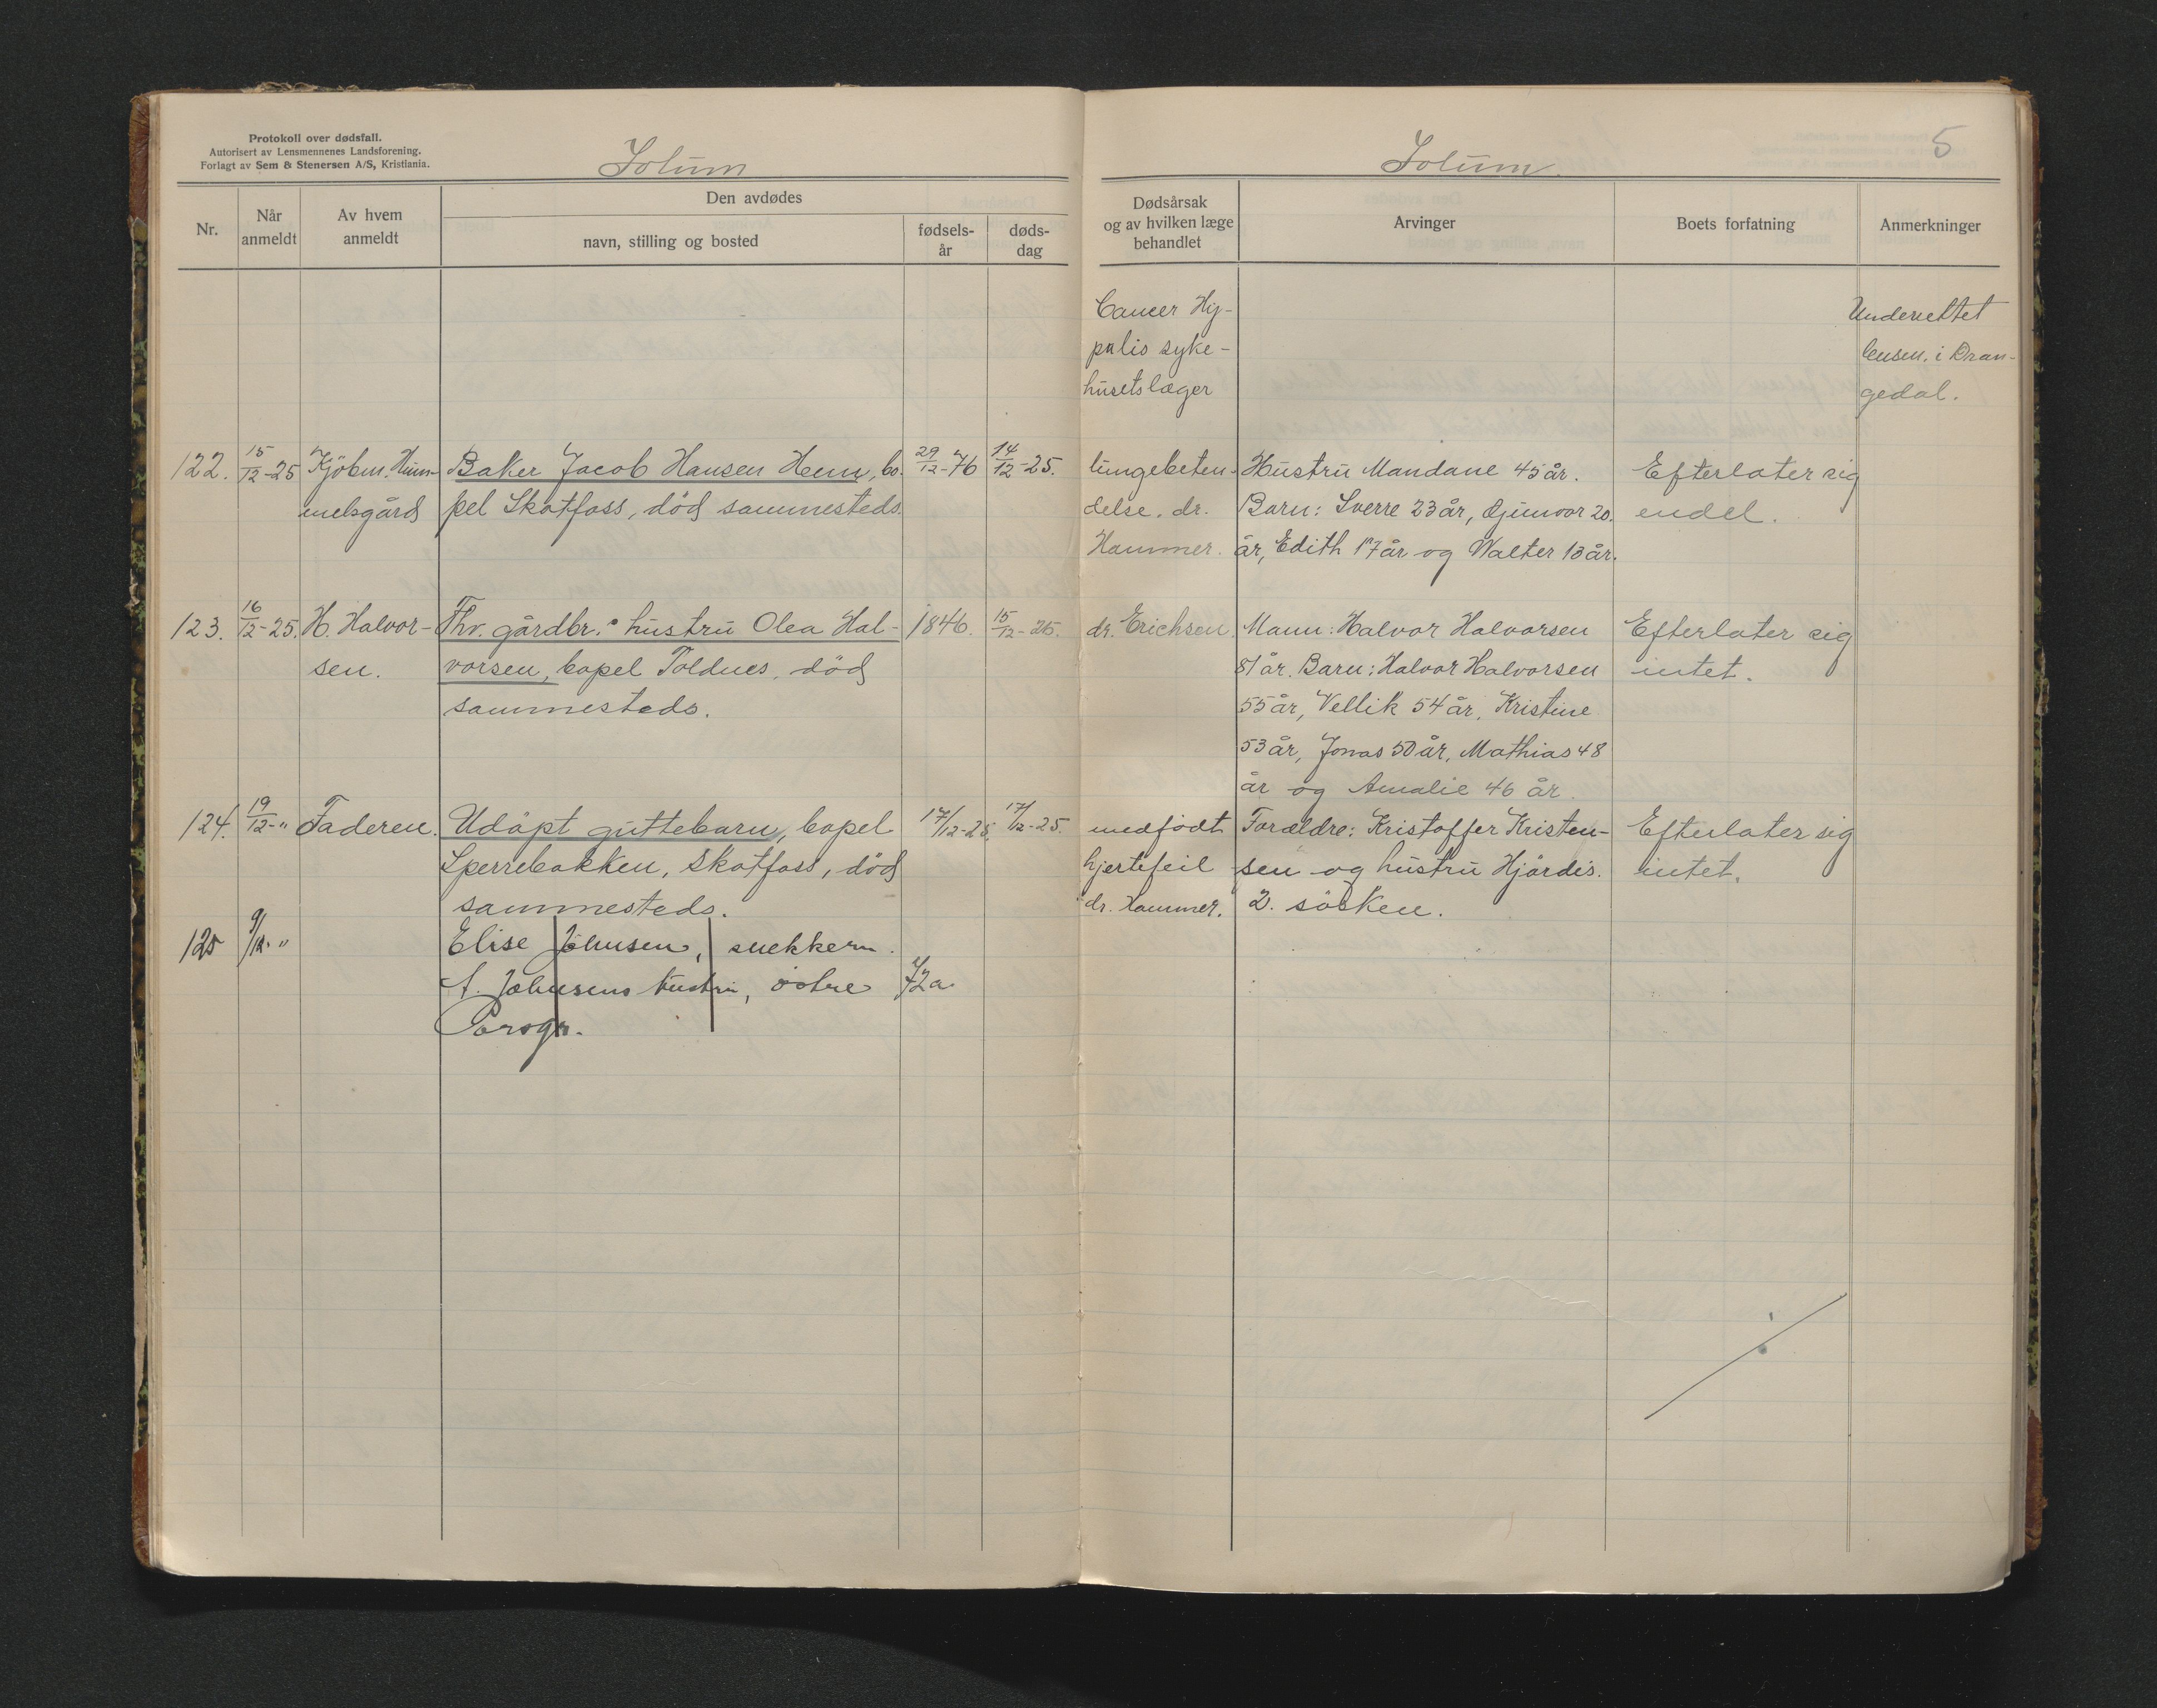 Protokoll over dødsfall.
Autorisert av Lensmennenes Landsforening.
Forlagt av Sem & Stenersen A/S, Kristiania.
Solum
Nr.
Når anmeldt
Av hvem anmeldt
Den avdødes
navn, stilling og bosted
fødsels-år
døds-dag
122. 15/12-25 Kjöbm. Hum- Baker Jacob Hansen Hem, bo- 29/12-76 14/12-25.
melsgård pel Skotfoss, död sammesteds.
123. 16/12-25. H. Halvor- Fhv. gårdbr.s hustru Olea Hal- 1846. 15/12-25.
sen. vorsen, bopel Toldnes, död
sammesteds.
124. 19/12-" Faderen. Udöpt guttebarn, bopel 17/12-25. 17/12-25.
Sperrebakken, Skotfoss, död
sammesteds.
125 9/12-" Elise Johnsen, snekkerm.
A. Johnsens hustru, östre 72 a
Porsgr.
Solum.
5
Dødsårsak
og av hvilken læge
behandlet
Arvinger
Boets forfatning
Anmerkninger
Cancer Hy- Underrettet
palio syke- lensm. i Dran-
husetslæger gedal.
lungebeten- Hustru Mandane 45 år. Efterlater sig
delse. dr. Barn: Sverre 23 år, Gunvor 20. endel.
Hammer. år, Edith 17 år og Walter 13 år.
dr. Erichsen Mann: Halvor Halvorsen Efterlater sig
81 år. Barn: Halvor Halvorsen intet.
55 år, Vellik 54 år, Kristine
53 år, Jonas 50 år, Mathias 48
år og Amalie 46 år.
medfödt Forældre: Kristoffer Kristen- Efterlater sig
hjertefeil sen og hustru Hjördis. intet.
dr. Hammer. 2. sösken.